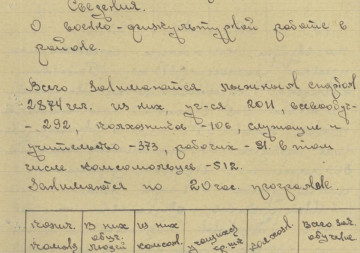 Сведения.
О военно-физкультурной работе в
районе.
Всего занимается лыжным спортом
2874 чел. из них, уч-ся 2011, всевобуч-
- 292, колхозников -106, служащие и
учительство -373, рабочих - 81 в том
числе комсомольцев -512.
Занимаются по 20 час. программе.
колич. В них из них учащихся колхозн. Всего зак.
команд обуч. комсом. обучение
людей